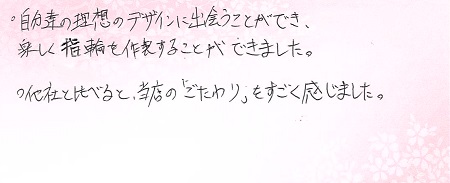 。自分達の理想のデザインに出会うことができ、
楽しく指輪を作製することができました。
○他社と比べると、当店の「こだわり」をすごく感じました。